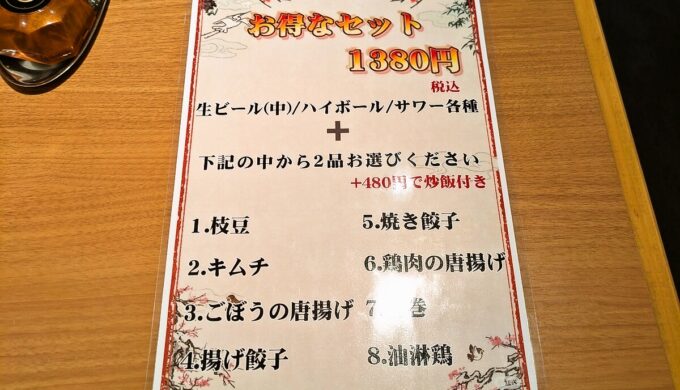 お得なセット
1380円
税込
生ビール(中)/ハイボール/サワー各種
+
下記の中から2品お選びください
+480円で炒飯付き
1.枝豆
2.キムチ
3.ごぼうの唐揚げ
4.揚げ餃子
5.焼き餃子
6.鶏肉の唐揚げ
7.巻
8.油淋鶏